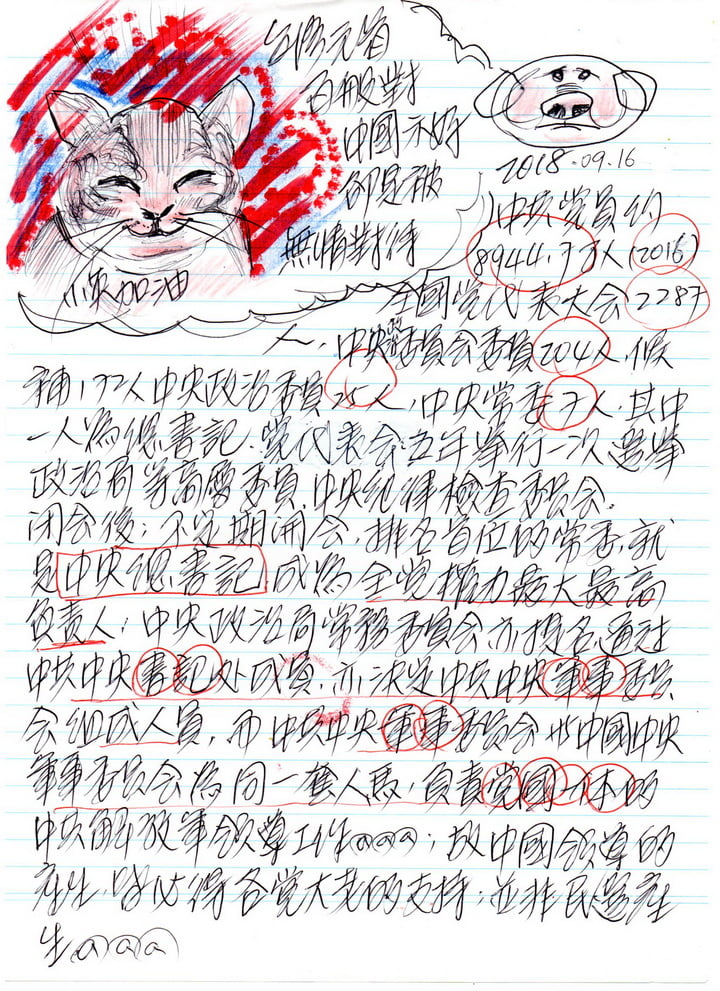 百般對
中國示好
卻是被
無情對待
加油
2018.09.16
中共党員約
8944.7万人(2016)
全國党代表大会2287
人,中央委員会委員204人,候
補172人中央政治委員25人,中央常委7人,其中
一人為總書記.党代表会五年举行一次選举
政治局等高層委員,中央紀律檢查委員会.
闭会後;不定期開会,排名首位的常委,就
是中央總書記,成為全党權力最大最高
負責人;中央政治局常務委員会亦提名通过
中共中央書記处成員,亦決定中共中央軍事委員
会組成人員,而中共中央軍事委員会與中國中央
軍事委員会為同一套人馬,負責党國一体的
中共解放軍領導工作@@@;故中國領導的
產生,皆必得各党大老的支持;並非民選產
生@@@